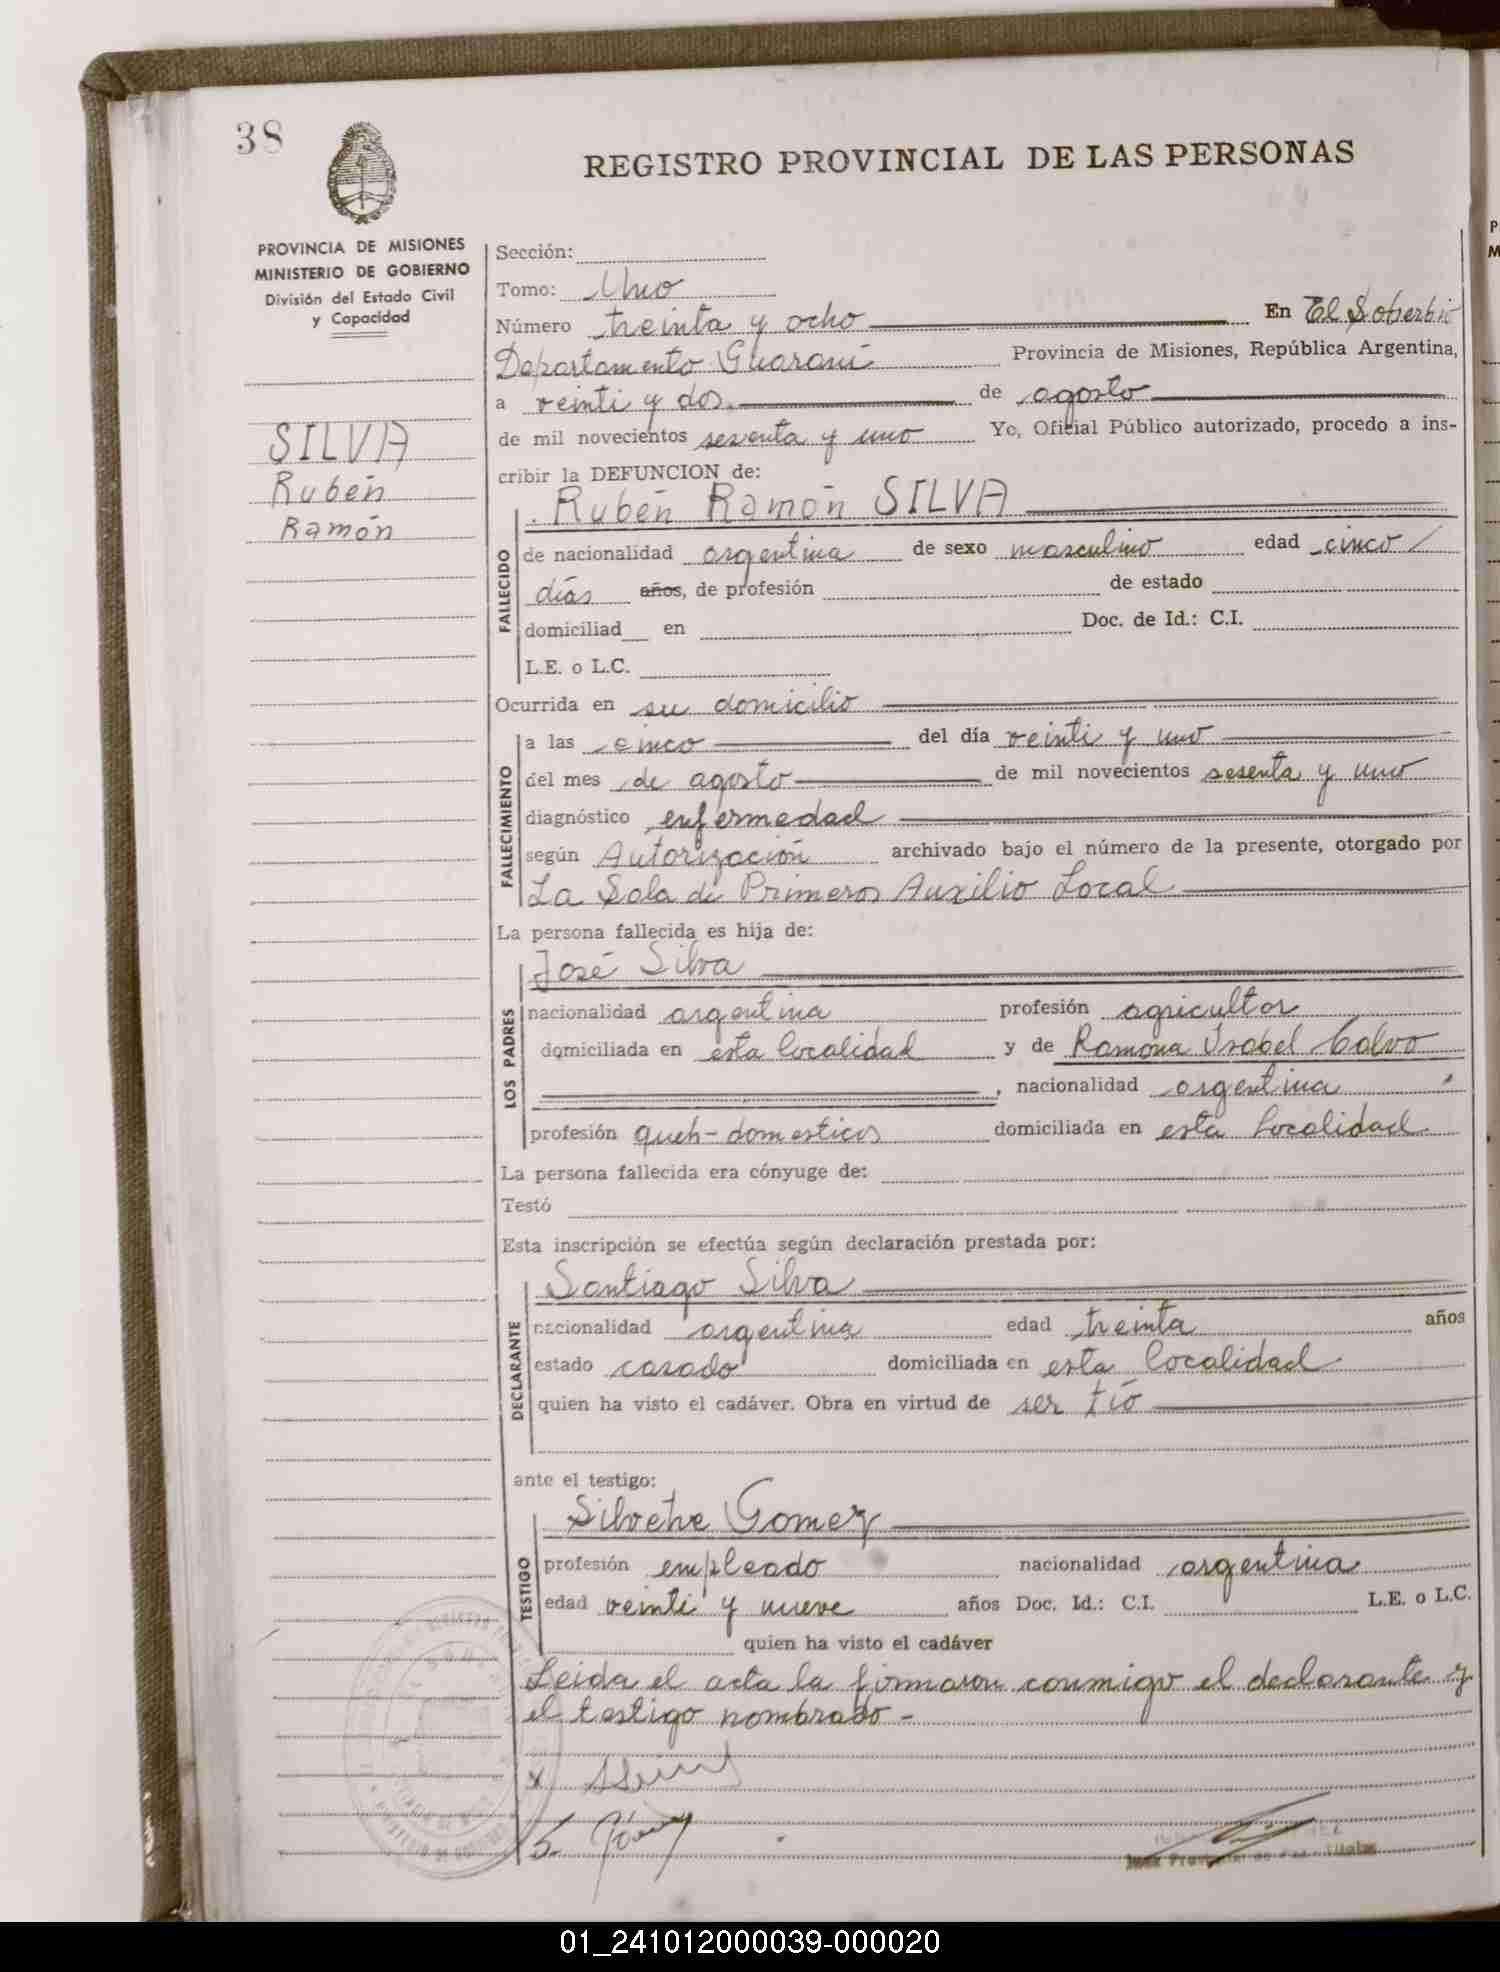 38
REGISTRO PROVINCIAL DE LAS PERSONAS
PROVINCIA DE MISIONES
MINISTERIO DE GOBIERNO
División del Estado Civil
y Capacidad
SILVA
Rubén
Ramón
Sección:
Tomo: Uno
Número treinta y ocho En El Soberbio
Departamento Guaraní Provincia de Misiones, República Argentina,
a veinti y dos de agosto
de mil novecientos sesenta y uno Yo, Oficial Público autorizado, procedo a ins-
cribir la DEFUNCION de:
Rubén Ramón SILVA
FALLECIDO
de nacionalidad argentina de sexo masculino edad cinco
días años, de profesión de estado
domiciliad en Doc. de Id.: C.I.
L.E. o L.C.
Ocurrida en su domicilio
FALLECIMIENTO
a las cinco del día veinti y uno
del mes de agosto de mil novecientos sesenta y uno
diagnóstico enfermedad
según Autorización archivado bajo el número de la presente, otorgado por
La Sala de Primeros Auxilio Local
La persona fallecida es hija de:
José Silva
LOS PADRES
nacionalidad argentina profesión agricultor
domiciliada en esta localidad y de Ramona Isabel Calvo
, nacionalidad argentina
profesión queh-domesticos domiciliada en esta localidad
La persona fallecida era cónyuge de:
Testó
Esta inscripción se efectúa según declaración prestada por:
Santiago Silva
DECLARANTE
nacionalidad argentina edad treinta años
estado casado domiciliada en esta localidad
quien ha visto el cadáver. Obra en virtud de ser tío
ante el testigo:
Silvetre Gomez
TESTIGO
profesión empleado nacionalidad argentina
edad veinti y nueve años Doc. Id.: C.I. L.E. o L.C.
quien ha visto el cadáver
Leida el acta la firmaron conmigo el declarante y
el testigo nombrado -
01_241012000039-000020